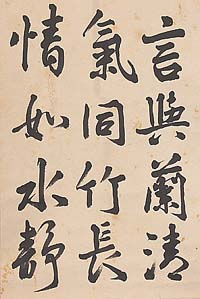 言與蘭清
氣同竹長
情如水靜